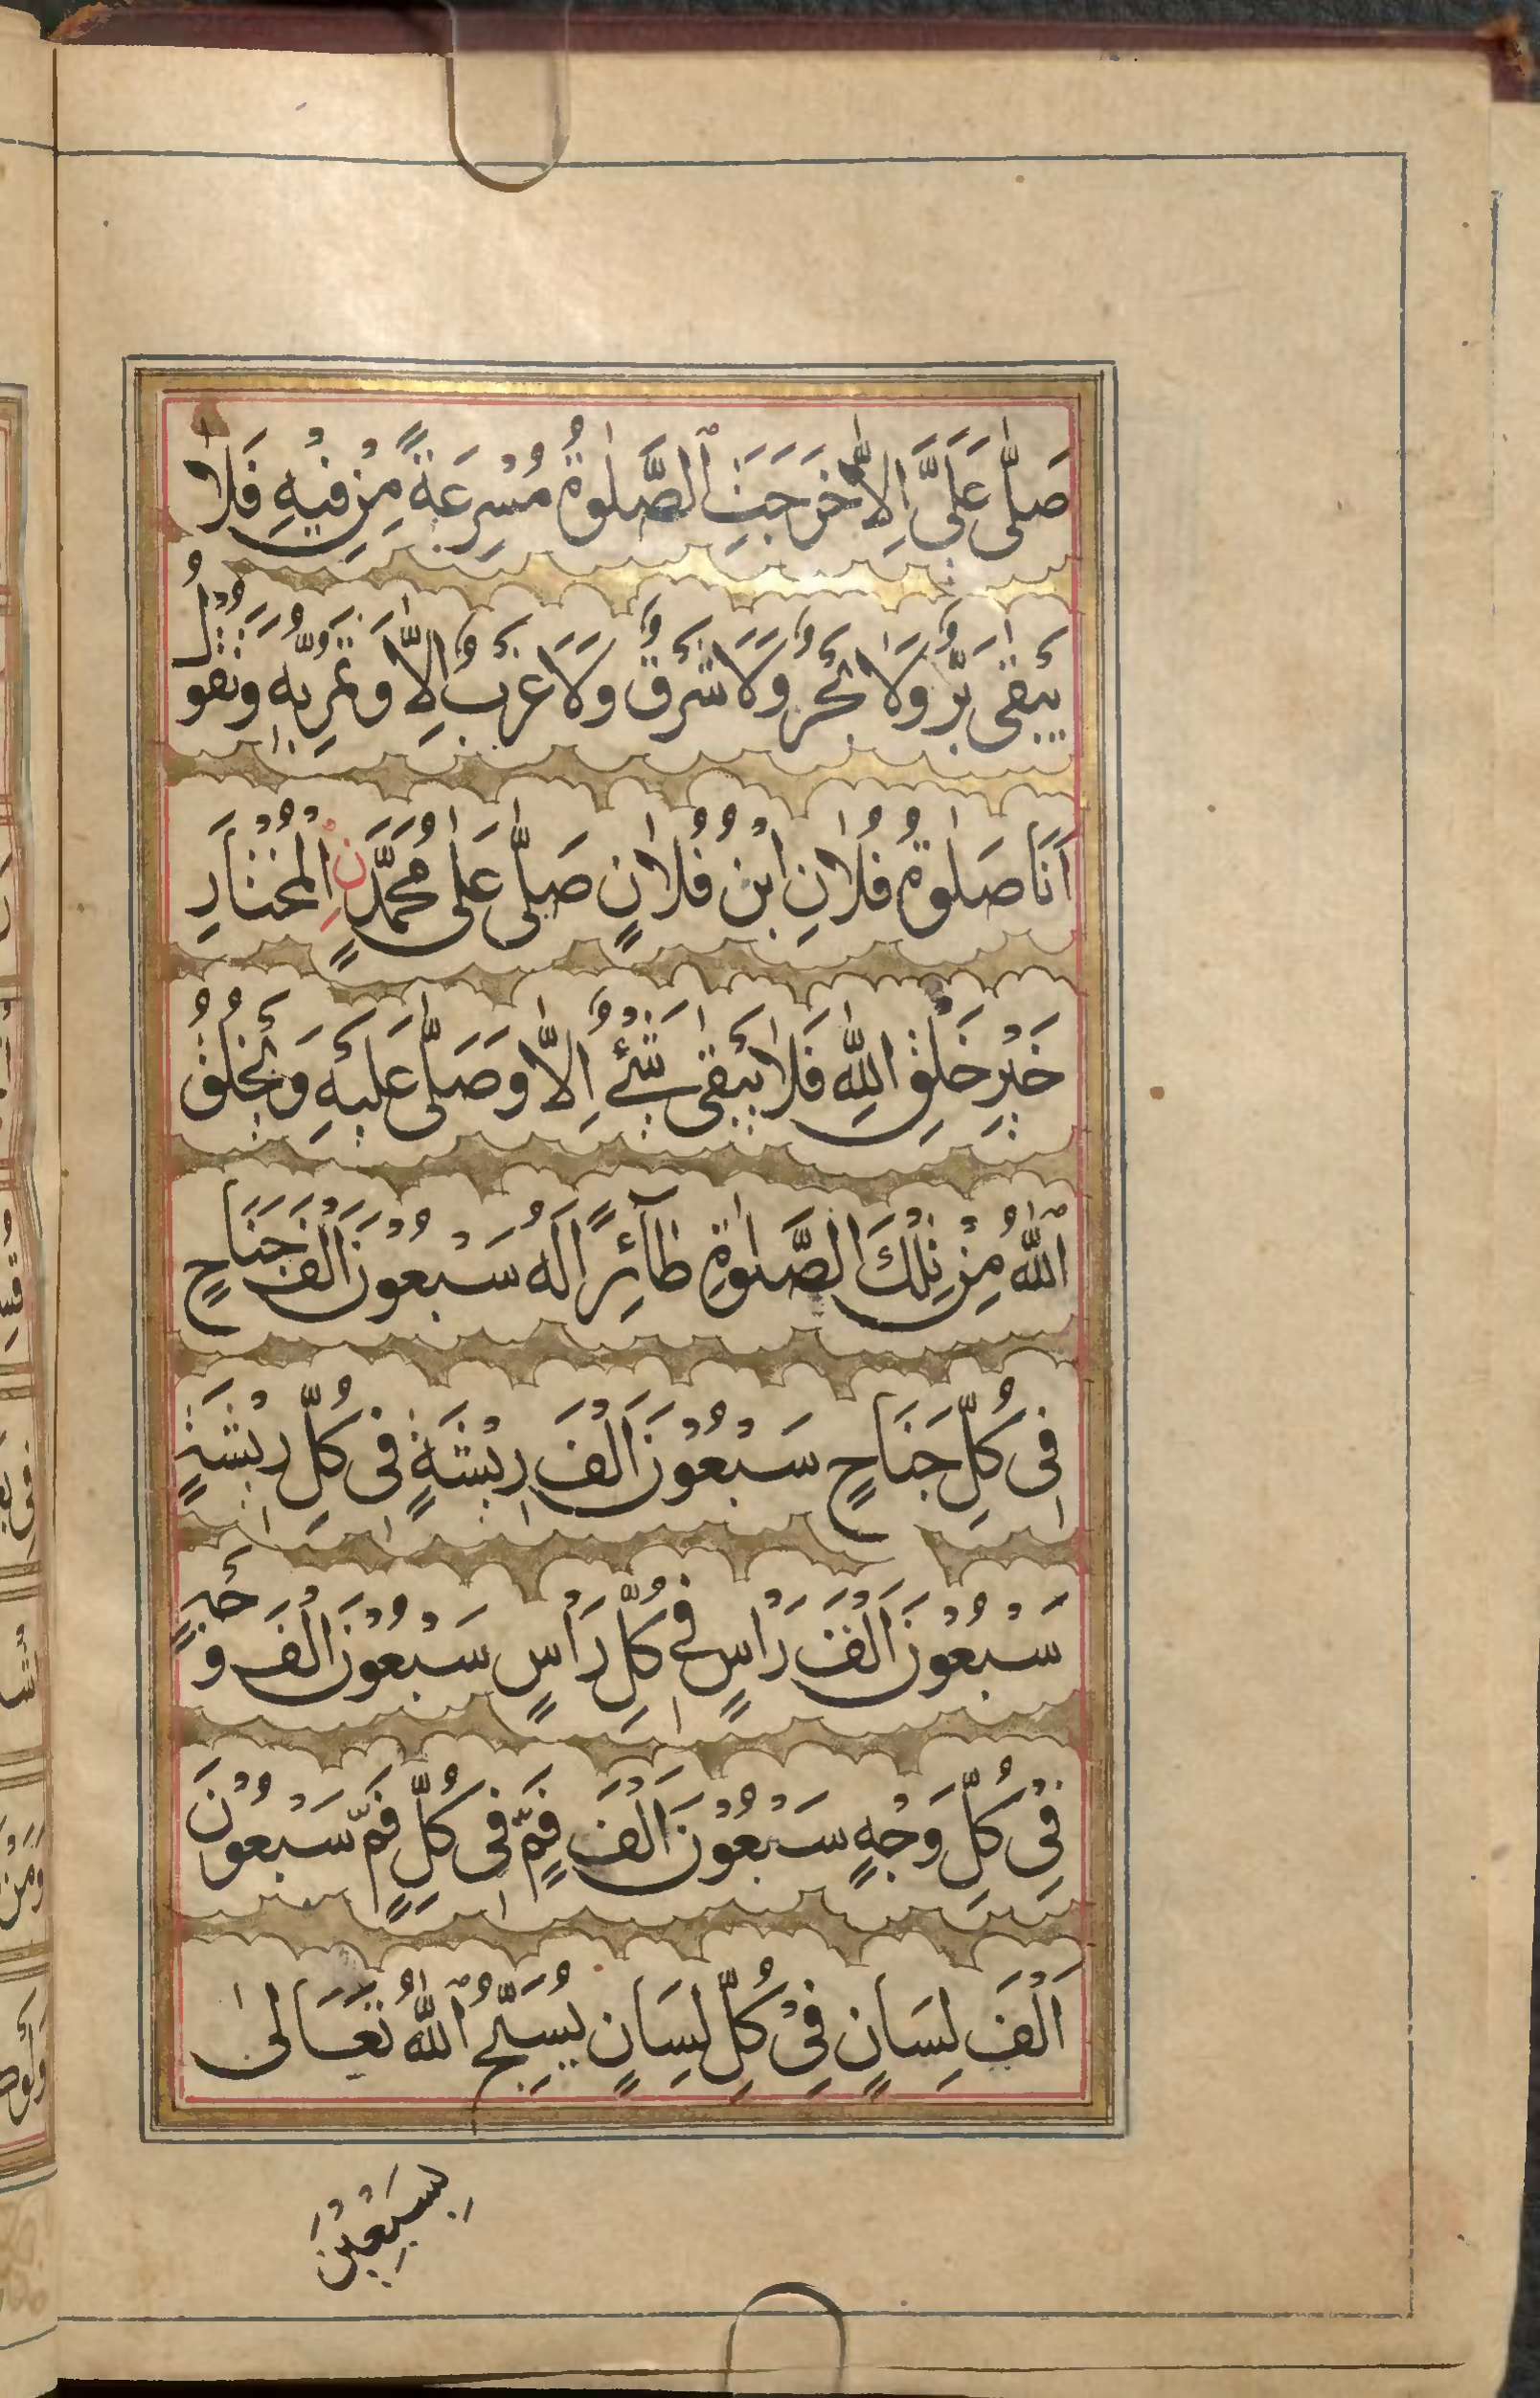 صَلّٰى عَلَىَّ اِلاّٰ خَرَجَتِ الصَّلٰوةُ مُسْرِعَةً مِنْ فِيْهِ فَلاٰ
يَبْقٰى بَرٌّ وَلاٰ بَحْرٌ وَلاَ شَرْقٌ وَلاَ غَرْبٌ اِلاّٰ وَتَمُرُّ بِهٖ وَتَقُوْلُ
اَنَا صَلٰوةُ فُلاٰنِ ابْنِ فُلاٰنٍ صَلّٰى عَلٰى مُحَمَّدٍ نِ الْمُخْتَارِ
خَيْرِ خَلْقِ اللّٰهِ فَلاٰ يَبْقٰى شَيْئٌ اِلاّٰ وَصَلّٰى عَلَيْهِ وَيَخْلُقُ
اللّٰهُ مِنْ تِلْكَ الصَّلٰوةِ طَآئِرًا لَهُ سَبْعُوْنَ اَلْفَ جَنَاحٍ
فِى كُلِّ جَنَاحٍ سَبْعُوْنَ اَلْفَ رِيْشَةٍ فِى كُلِّ رِيْشَةٍ
سَبْعُوْنَ اَلْفَ رَاْسٍ فِى كُلِّ رَاْسٍ سَبْعُوْنَ اَلْفَ وَجْهٍ
فِىْ كُلِّ وَجْهٍ سَبْعُوْنَ اَلْفَ فَمٍّ فِى كُلِّ فَمٍّ سَبْعُوْنَ
اَلْفَ لِسَانٍ فِىْ كُلِّ لِسَانٍ يُسَبِّحُ اللّٰهُ تَعَالىٰ
بِسَبْعِيْنَ